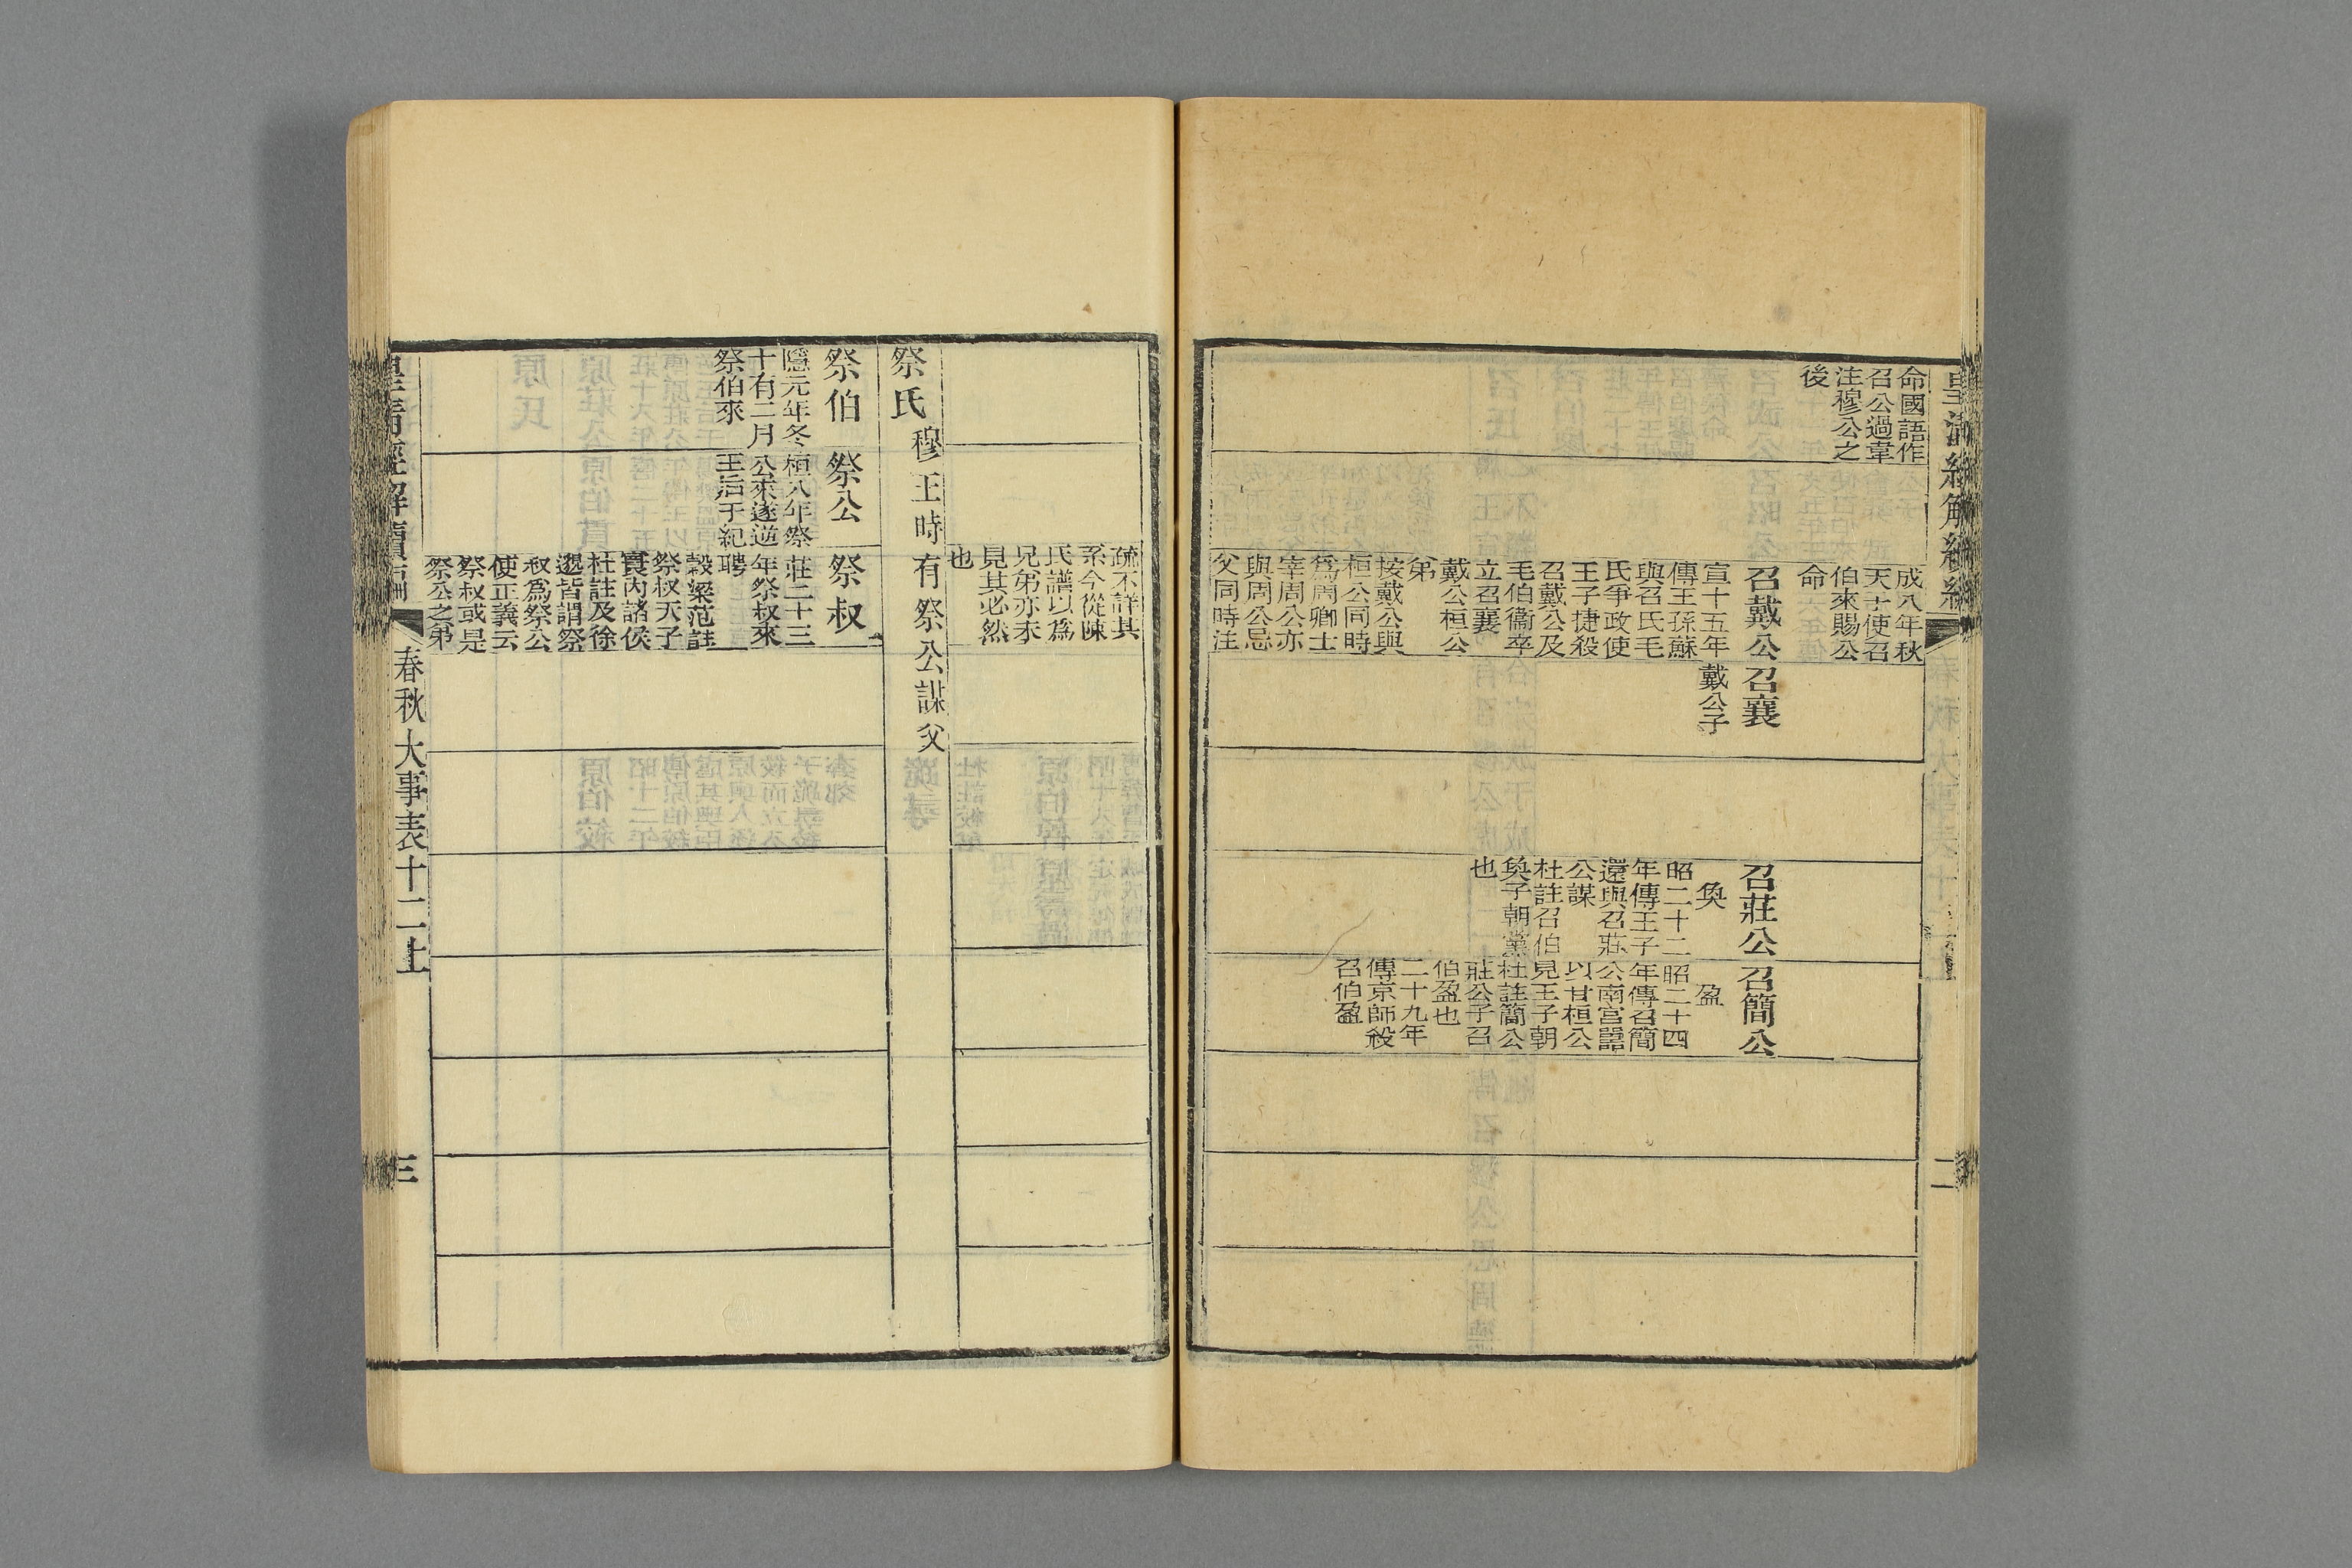 命國語作
召公過韋
注穆公之
後
成八年秋
天子使召
伯來賜公
命
召戴公
宣十五年
傳王孫蘇
與召氏毛
氏爭政使
王子捷殺
召戴公及
毛伯衞卒
立召襄
戴公桓公
弟
按戴公與
桓公同時
爲周卿士
宰周公亦
與周公忌
父同時注
召襄
戴公子
召莊公
奐
昭二十二
年傳王子
還與召莊
公謀
杜註召伯
奐子朝黨
也
召簡公
盈
昭二十四
年傳召簡
公南宮嚚
以甘桓公
見王子朝
杜註簡公
莊公子召
伯盈也
二十九年
傳京師殺
召伯盈
二
疏不詳其
系今從陳
氏譜以爲
兄弟亦未
見其必然
也
祭氏 穆王時有祭公謀父
祭伯
隱元年冬
十有二月
祭伯來
祭公
桓八年祭
公來遂逆
王后于紀
祭叔
莊二十三
年祭叔來
聘
穀梁范註
祭叔天子
寰內諸侯
杜註及徐
邈皆謂祭
叔爲祭公
使正義云
祭叔或是
祭公之弟
皇清經解續
春秋大事表十二上
三